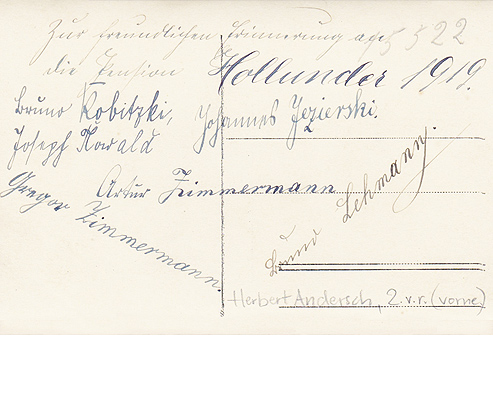 Zur freundlichen Erinnerung an
5522
die Pension Hollunder 1919.
Bruno Kobitzki, Johannes Jezierski.
Joseph Kowald
Artur Zimmermann
Gregor Zimmermann.
Bruno Lehmann.
Herbert Andersch, 2.v.r. (vorne)